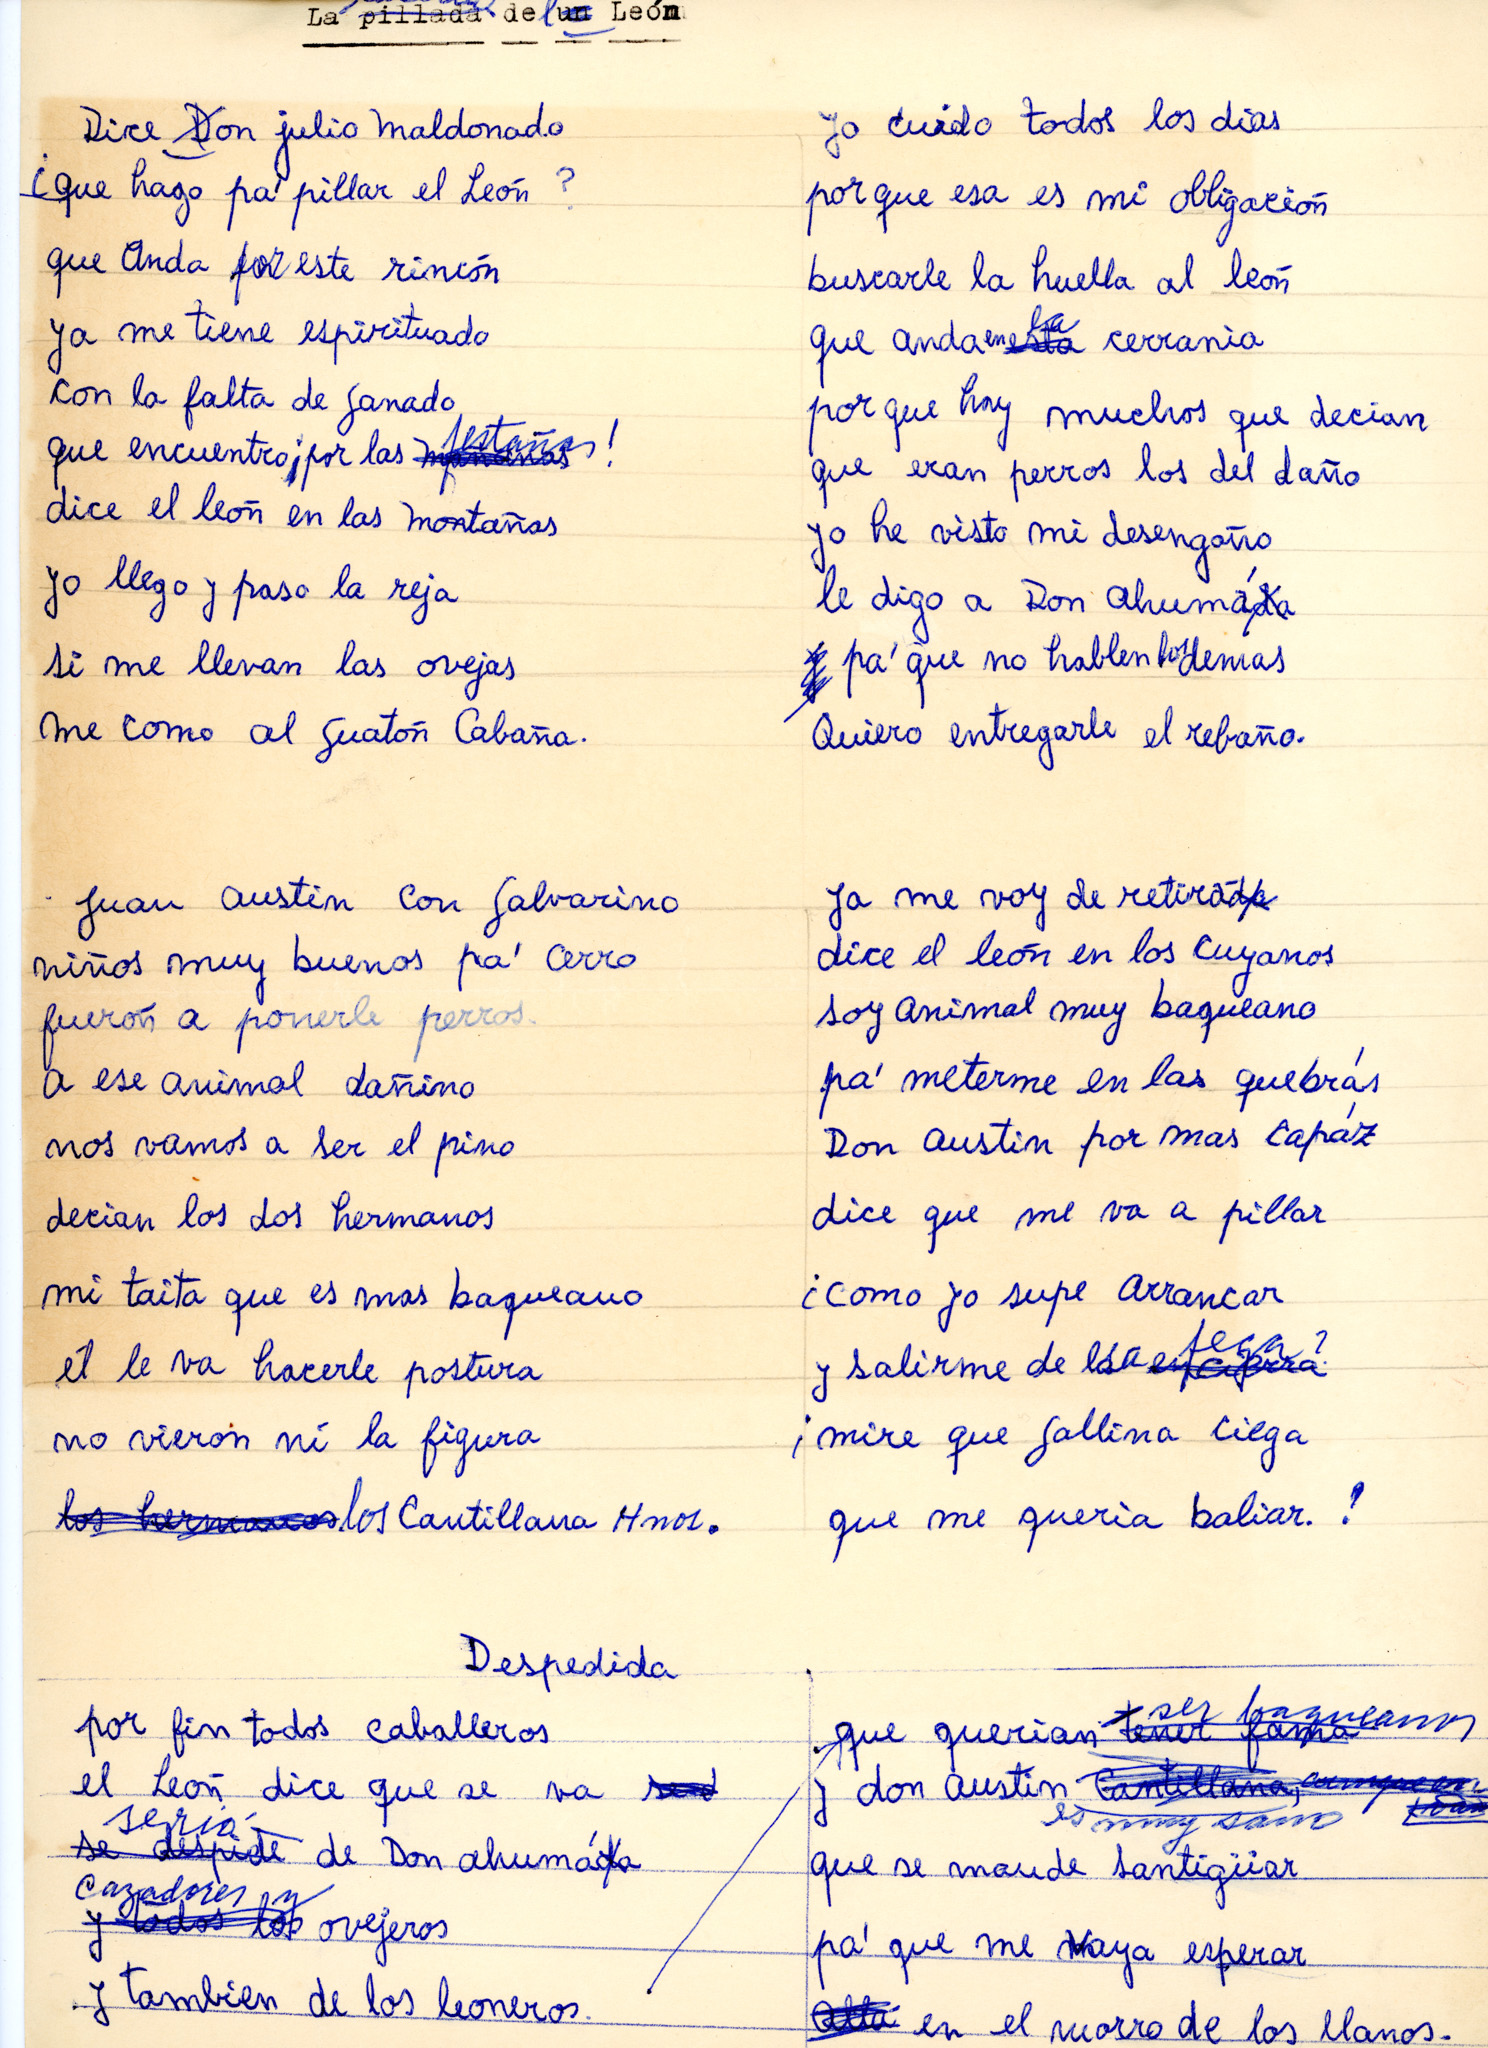 La pillada del un León
Dice Don julio Maldonado
¿que hago pa' pillar el León?
que Anda por este rincón
ya me tiene espirituado
con la falta de ganado
que encuentro ¡por las mañanas pestañas!
dice el león en las Montañas
yo llego y paso la reja
si me llevan las ovejas
me como al guatón Cabaña.
Juan Austin con Galvarino
niños muy buenos pa' cerro
fueron a ponerle perros.
a ese animal dañino
nos vamos a ser el pino
decian los dos hermanos
mi taita que es mas baqueano
el le va hacerle postura
no vieron ni la figura
los hermanos los Cantillana Hnos.
yo cuido todos los dias
porque esa es mi obligación
buscarle la huella al león
que anda en esta la cerrania
porque hay muchos que decian
que eran perros los del daño
yo he visto mi desengaño
le digo a Don Ahumáda
pa' que no hablen los demas
Quiero entregarle el rebaño.
ya me voy de retiráda
dice el león en los Cuyanos
soy animal muy baqueano
pa' meterme en las quebrás
Don Austin por mas capáz
dice que me va a pillar
¡como yo supe Arrancar
y salirme de la encierra pega?
¡mire que gallina ciega
que me queria baliar.!
Despedida
por fin todos caballeros
el León dice que se va
se despide seriá de Don ahumáda
y todos los cazadores y ovejeros
y tambien de los leoneros.
que querian tener fama ser baqueanos
y don Austin Cantillana, es muy sano
que se mande santigüiar
pa' que me vaya esperar
Allá en el morro de los llanos.